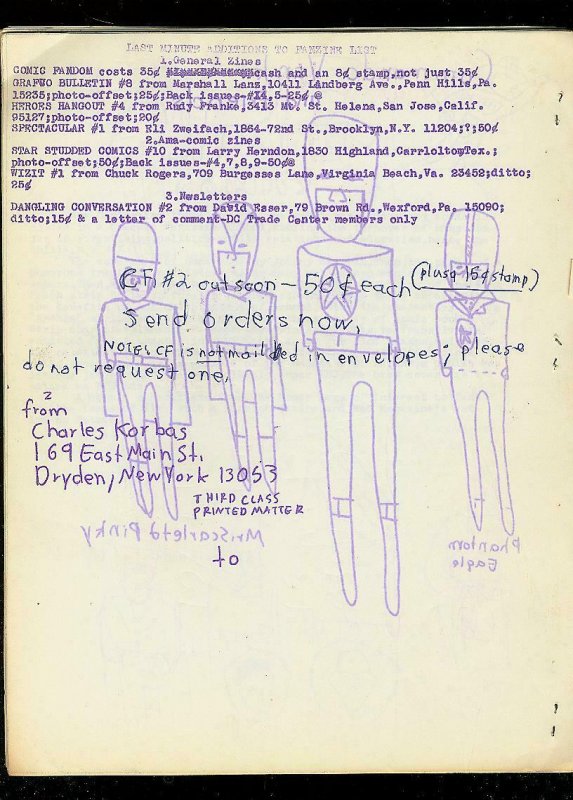 LAST MINUTE ADDITIONS TO FANZINE LIST
1.General Zines
COMIC FANDOM costs 35¢ cash and an 8¢ stamp,not just 35¢
GRAFWO BULLETIN #8 from Marshall Lanz,10411 Landberg Ave.,Penn Hills,Pa.
15235;photo-offset;25¢;Back issues-#14,5-25¢ @
HEROES HANGOUT #4 from Rudy Franke,3413 Mt. St. Helena,San Jose,Calif.
95127;photo-offset;20¢
SPECTACULAR #1 from Eli Zweifach,1864-72nd St.,Brooklyn,N.Y. 11204;?;50¢
2.Ama-comic zines
STAR STUDDED COMICS #10 from Larry Herndon,1830 Highland,Carrlolton,Tex.;
photo-offset;50¢;Back issues-#4,7,8,9-50¢@
WIZIT #1 from Chuck Rogers,709 Burgesses Lane,Virginia Beach,Va. 23452;ditto;
25¢
3.Newsletters
DANGLING CONVERSATION #2 from David Esser,79 Brown Rd.,Wexford,Pa. 15090;
ditto;15¢ & a letter of comment-DC Trade Center members only
CF #2 out soon — 50¢ each (plus a 15¢ stamp)
Send orders now.
NOTE: CF is not mailed in envelopes; please
do not request one.
from
Charles Korbas
169 East Main St.
Dryden, New York 13053
THIRD CLASS
PRINTED MATTER
to
Mr. Scarlet & Pinky
Phantom
Eagle